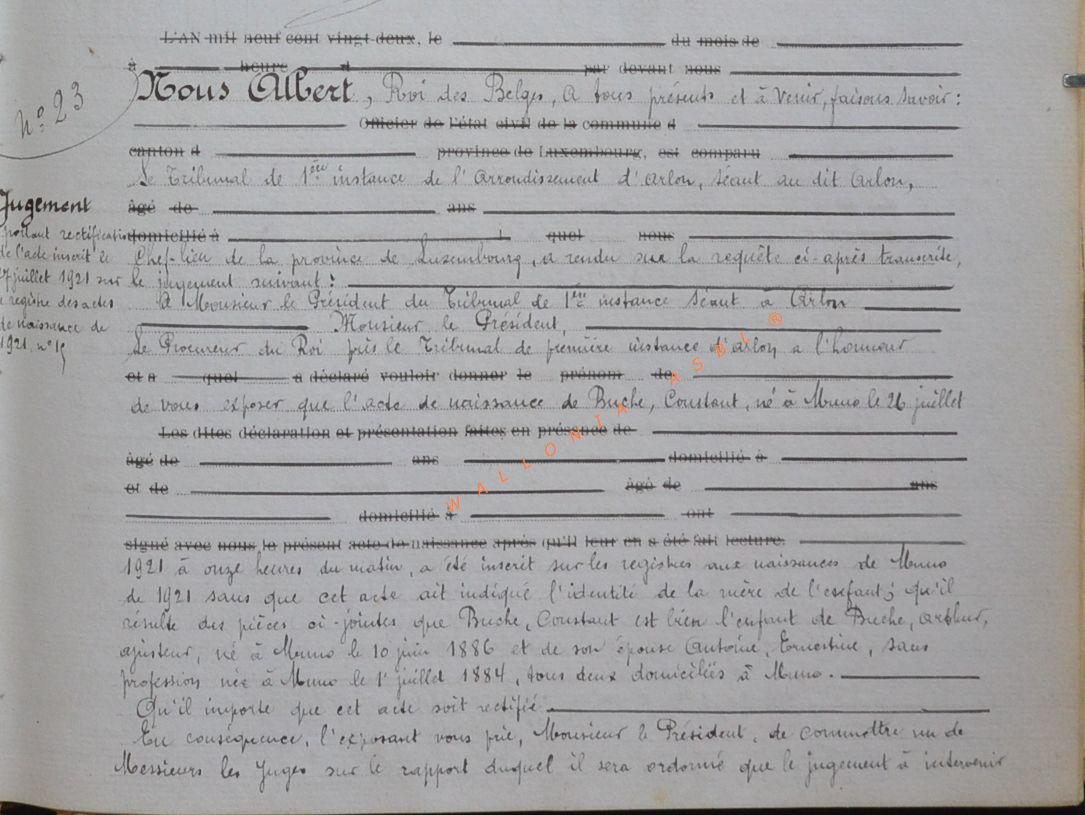 L'AN mil neuf cent vingt-deux, le du mois de
à heure par devant nous
Nous Albert, Roi des Belges, A tous présents et à venir, faisons savoir :
N° 23
Officier de l'état civil de la commune d
canton d province de Luxembourg, est comparu
Le Tribunal de 1ère instance de l'Arrondissement d'Arlon, séant au dit Arlon,
âgé de ans
domicilié à quel nous
Chef-lieu de la province de Luxembourg, a rendu sur la requête ci-après transcrite,
le jugement suivant :
Jugement
portant rectification
de l'acte inscrit le
27 juillet 1921 sur
le registre des actes
de naissance de
1921, n° 19
A Monsieur le Président du Tribunal de 1ère instance séant à Arlon
Monsieur le Président,
Le Procureur du Roi près le Tribunal de première instance d'Arlon a l'honneur
et a quel a déclaré vouloir donner le prénom de
de vous exposer que l'acte de naissance de Buche, Constant, né à Muno le 26 juillet
Les dites déclaration et présentation faites en présence de
âgé de ans domicilié à
et de âgé de ans
domicilié à ont
signé avec nous le présent acte de naissance après qu'il leur en a été fait lecture.
1921 à onze heures du matin, a été inscrit sur les registres aux naissances de Muno
de 1921 sans que cet acte ait indiqué l'identité de la mère de l'enfant; qu'il
résulte des pièces ci-jointes que Buche, Constant est bien l'enfant de Buche, Arthur,
ajusteur, né à Muno le 10 juin 1886 et de son épouse Antoine, Ernestine, sans
profession née à Muno le 1r juillet 1884, tous deux domiciliés à Muno.
Qu'il importe que cet acte soit rectifié.
En conséquence, l'exposant vous prie, Monsieur le Président, de commettre un de
Messieurs les Juges sur le rapport duquel il sera ordonné que le jugement à intervenir
WALLONIA ASBL ®